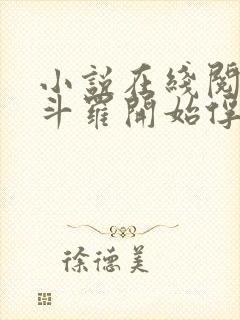 小説在綫閱
斗羅開始俘
徐德美